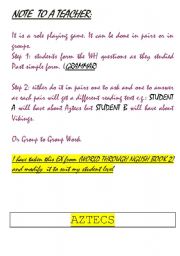 NOTE TO A TEACHER:
It is a role playing game. It can be done in pairs or in
groups.
Step 1: students form the WH questions as they studied
Past simple form. (GRAMMAR)
Step 2: either do it in pairs one to ask and one to answer
as each pair will get a different reading text e.g.: STUDENT
A will have about Aztecs but STUDENT B will have about
Vikings.
Or Group to Group Work.
I have taken this EX from (WORLD THROUGH NGLISH BOOK 2) and
modify it to suit my student level
AZTECS